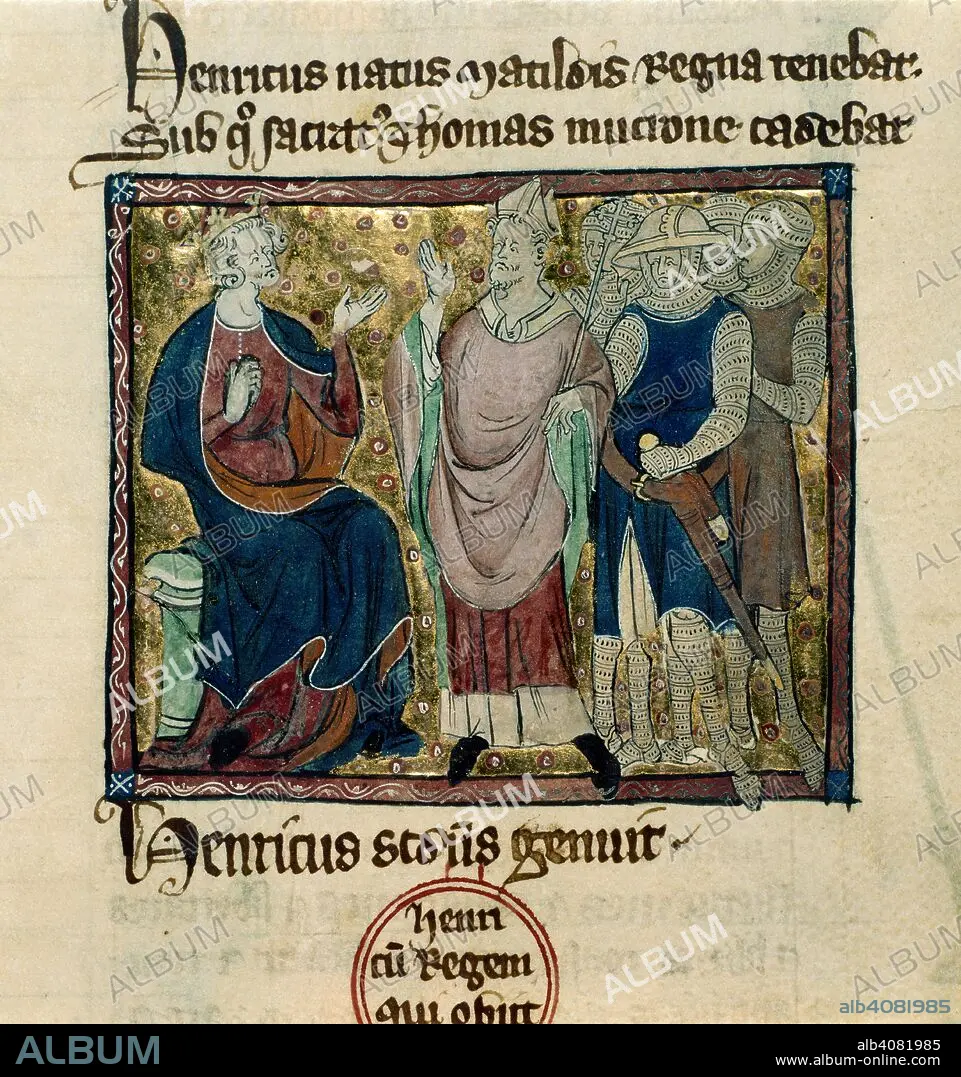 Henricus natus Matildis Regna tenebat.
Sub qo sacratus Thomas mucrone cadebat
Henricus scdus genuit
henri
cū Regem
qui obiit
ALBUM
alb4081985
ALBUM
alb4081985
www.album-online.com